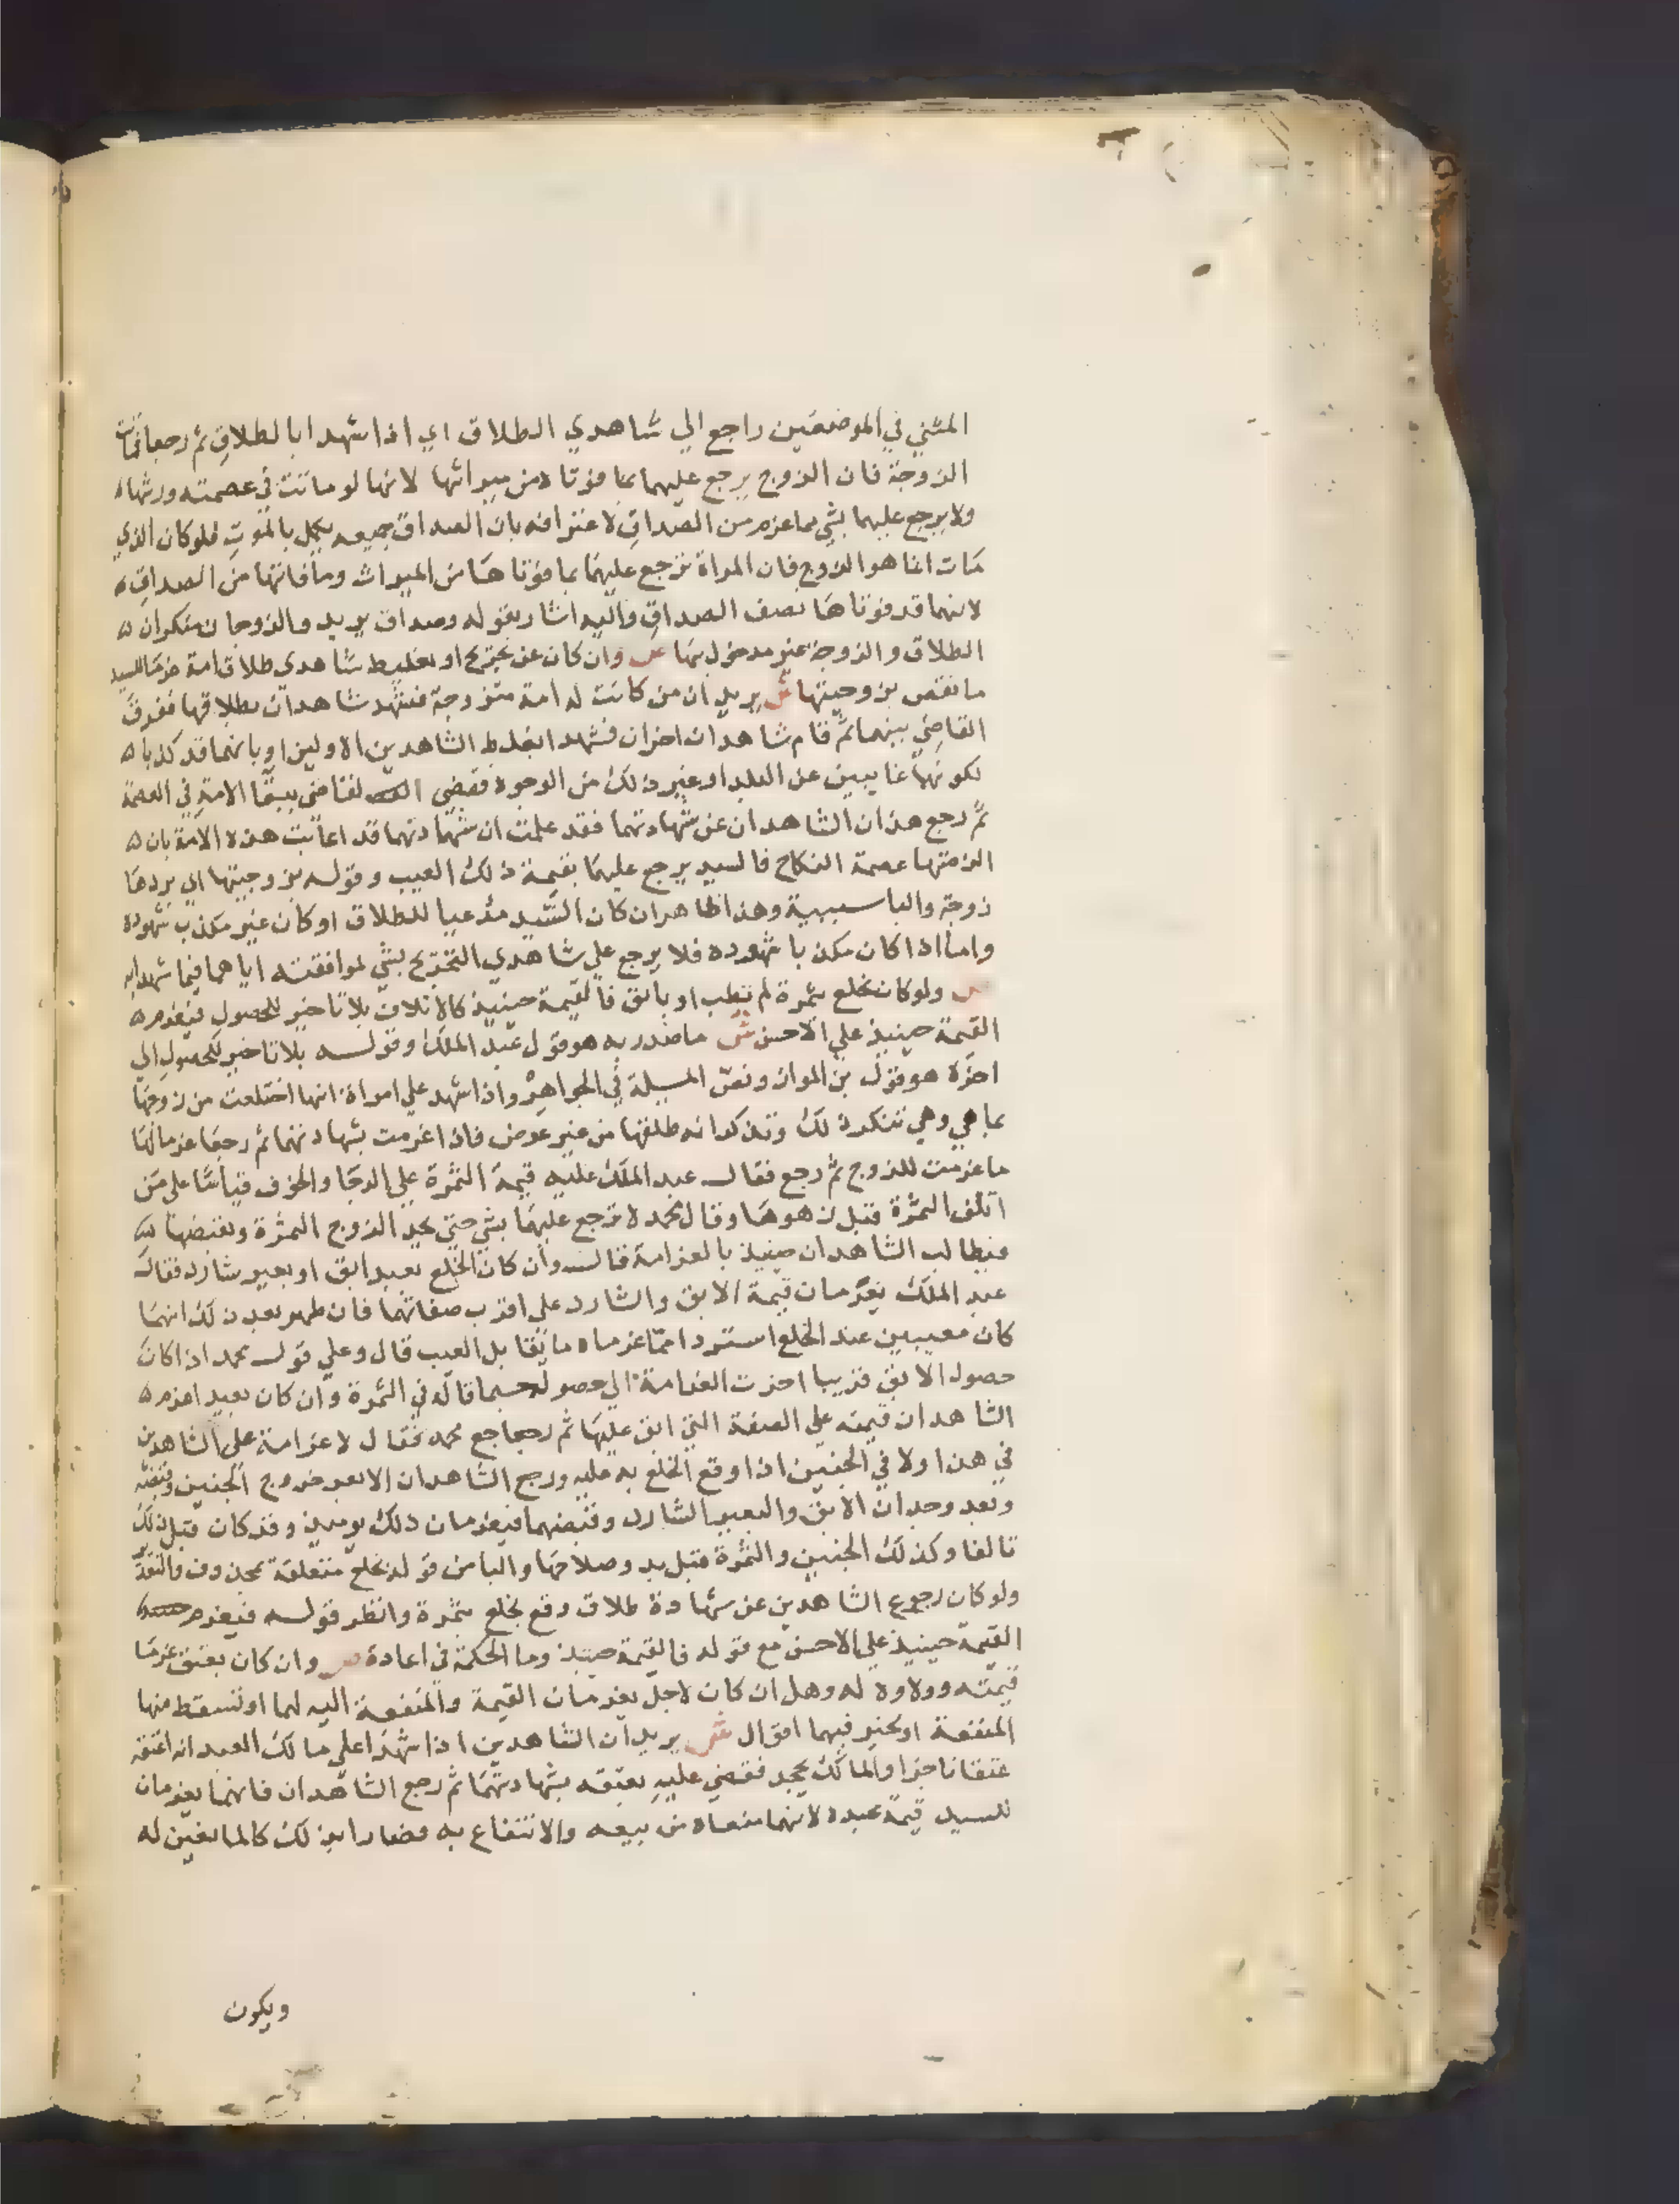 المثني في الموضعين راجع الي شاهدي الطلاق اي اذا شهدا بالطلاق ثم رجعا فماتت
الزوجة فان الزوج يرجع عليهما بما فوتاه من ميراثها لانها لو ماتت في عصمته ورثها
ولا يرجع عليهما بشي مما غرم من الصداق لاعترافه بان الصداق جميعه يكمل بالموت فلو كان الذي
مات انما هو الزوج فان المراة ترجع عليهما بما فوتاها من الميراث وما فاتها من الصداق
لانهما قد فوتاها نصف الصداق واليه اشار بقوله وصداق يريد والزوجان منكران
الطلاق والزوجة غير مدخول بها ص وان كان عن تجريح او تغليط شاهدي طلاق امة غرما للسيد
ما نقص بزوجيتها ش يريد ان من كانت له امة متزوجة فشهد شاهدان بطلاقها ففرق
القاضي بينهما ثم قام شاهدان اخران فشهدا بغلط الشاهدين الاولين او بانهما قد كذبا
لكونهما غايبين عن البلد او غير ذلك من الوجوه فقضي القاضي ببقا الامة في العصمة
ثم رجع هذان الشاهدان عن شهادتهما فقد علمت ان شهادتهما قد اعابت هذه الامة بان
الزمتها عصمة النكاح فالسيد يرجع عليهما بقيمة ذلك العيب وقوله بزوجيتها اي بردها
زوجة والبا سببية وهذا ظاهر ان كان السيد مدعيا للطلاق او كان غير مكذب شهوده
واما اذا كان مكذبا شهوده فلا يرجع علي شاهدي التجريح بشي لموافقته اياهما فيما شهدا به
ص ولو كان بخلع بثمرة لم تطب او بابق فالقيمة حينيذ كالاتلاف بلا تاخير للحصول فيغرم
القيمة حينيذ علي الاحسن ش ما صدر به هو قول عبد الملك وقوله بلا تاخير للحصول الي
اخره هو قول بن المواز ونص المسيلة في الجواهر واذا شهد علي امراة انها اختلعت من زوجها
بما هي وهي تنكر ذلك وتذكر انه طلقها من غير عوض فاذا غرمت بشهادتهما ثم رجعا غرما لها
ما غرمت للزوج ثم رجع فقال عبد الملك عليه قيمة الثمرة علي الرجا والخوف قياسا علي من
اتلف الثمرة قبل زهوها وقال محمد لا ترجع عليهما بشي حتي يجد الزوج الثمرة ويقبضها
فيطالب الشاهدان حينيذ بالغرامة قال وان كان الخلع بعبد ابق او بعير شارد فقال
عبد الملك يغرمان قيمة الابق والشارد علي اقرب صفاتهما فان ظهر بعد ذلك انهما
كانا معيبين عند الخلع استردا مما غرماه ما يقابل العيب قال وعلي قول محمد اذا كان
حصول الابق قريبا اخرت الغرامة الي حصوله حسبما قاله في الثمرة وان كان بعيدا غرم
الشاهدان قيمته علي الصفة التي ابق عليها ثم رجع محمد فقال لا غرامة علي الشاهدين
في هذا ولا في الجنين اذا وقع الخلع به عليه ورجع الشاهدان الا بعد خروج الجنين وقبضه
وبعد وجدان الابق والبعير الشارد وقبضهما فيغرمان ذلك يوميذ وقد كان قبل ذلك
تالفا وكذلك الجنين والثمرة قبل بدو صلاحها والبا من قوله بخلع متعلقة بمحذوف والتقدير
ولو كان رجوع الشاهدين عن شهادة طلاق وقع بخلع بثمرة وانظر قوله فيغرم
القيمة حينيذ علي الاحسن مع قوله فالقيمة حينيذ وما الحكمة في اعادة ص وان كان بعتق غرما
قيمته وولاوه له وهل ان كان لاجل يغرمان القيمة والمنفعة اليه لهما او تسقط منها
المنفعة او يخير فيهما اقوال ش يريد ان الشاهدين اذا شهدا علي مالك العبد انه اعتقه
عتقا ناجزا والمالك يجحد فقضي عليه بعتقه بشهادتهما ثم رجع الشاهدان فانهما يغرمان
للسيد قيمة عبده لانهما منعاه من بيعه والانتفاع به فصارا بذلك كالمانعين له
ويكون